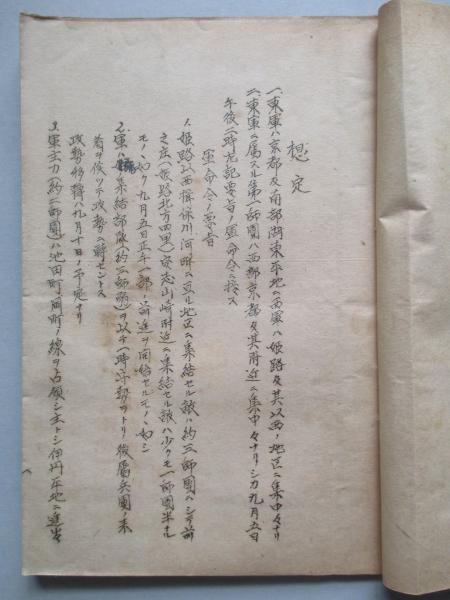 想定
一、東軍ハ京都及南部湖東平地ニ西軍ハ姫路及其以西ノ地区ニ集中々ナリ
二、東軍ニ属スル第一師團ハ西部京都及其附近ニ集中々ナリシカ九月五日
午後二時左記要旨ノ軍命令ニ接ス
軍命令ノ要旨
1、姫路以西揖保川河畔ニ亘ル地区ニ集結セル敵ハ約三師團ニシテ前
之庄(姫路北方四里)安志山崎附近ニ集結セル敵ハ少クモ一師團半ナル
モノヽ如ク九月五日正午一部ノ前進ヲ開始セルモノヽ如シ
2、軍ハ集結部隊(約三師團)ヲ以テ一時守勢ヲトリ後属兵團ノ来
着ヲ俟ツテ攻勢ニ轉セントス
攻勢移轉ハ九月十日ノ予定ナリ
3、軍主力(約二師團)ハ池田町岡町ノ線ヲ占領シ主トシ伊丹平地ニ進出